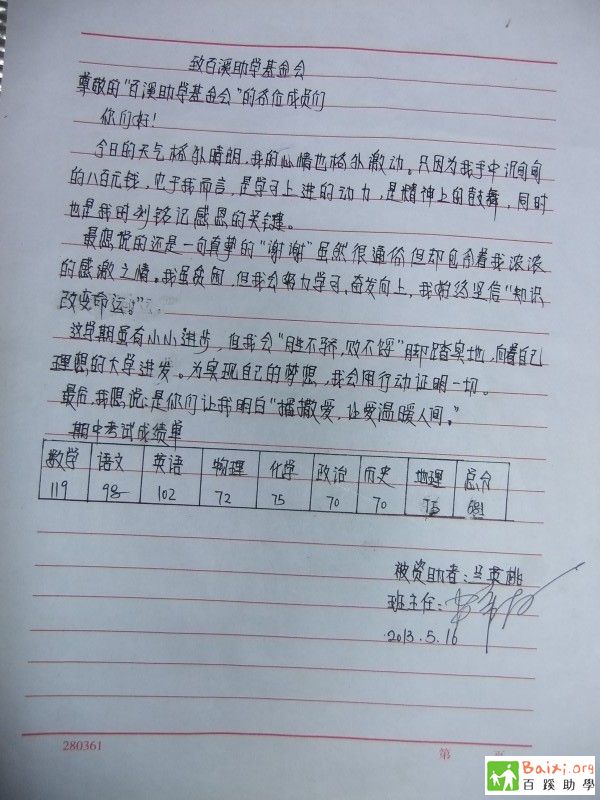 致百溪助学基金会
尊敬的"百溪助学基金会"的各位成员们
你们好!
今日的天气格外晴朗,我的心情也格外激动。只因为我手中沉甸甸
的八百元钱,它于我而言,是学习上进的动力,是精神上的鼓舞,同时
也是我时刻铭记感恩的关键。
最想说的还是一句真挚的"谢谢"虽然很通俗但却包含着我浓浓
的感激之情。我虽贫困,但我会努力学习,奋发向上,我始终坚信"知识
改变命运。"
这学期虽有小小进步,但我会"胜不骄,败不馁"脚踏实地,向着自己
理想的大学进发。为实现自己的梦想,我会用行动证明一切。
最后,我想说:是你们让我明白"播撒爱,让爱温暖人间。"
期中考试成绩单
数学 语文 英语 物理 化学 政治 历史 地理 总分
119 98 102 72 75 70 70 75 681
被资助者:兰英桃
班主任:
2013.5.16
280361
第 页
Baixi.org
百蹊助學